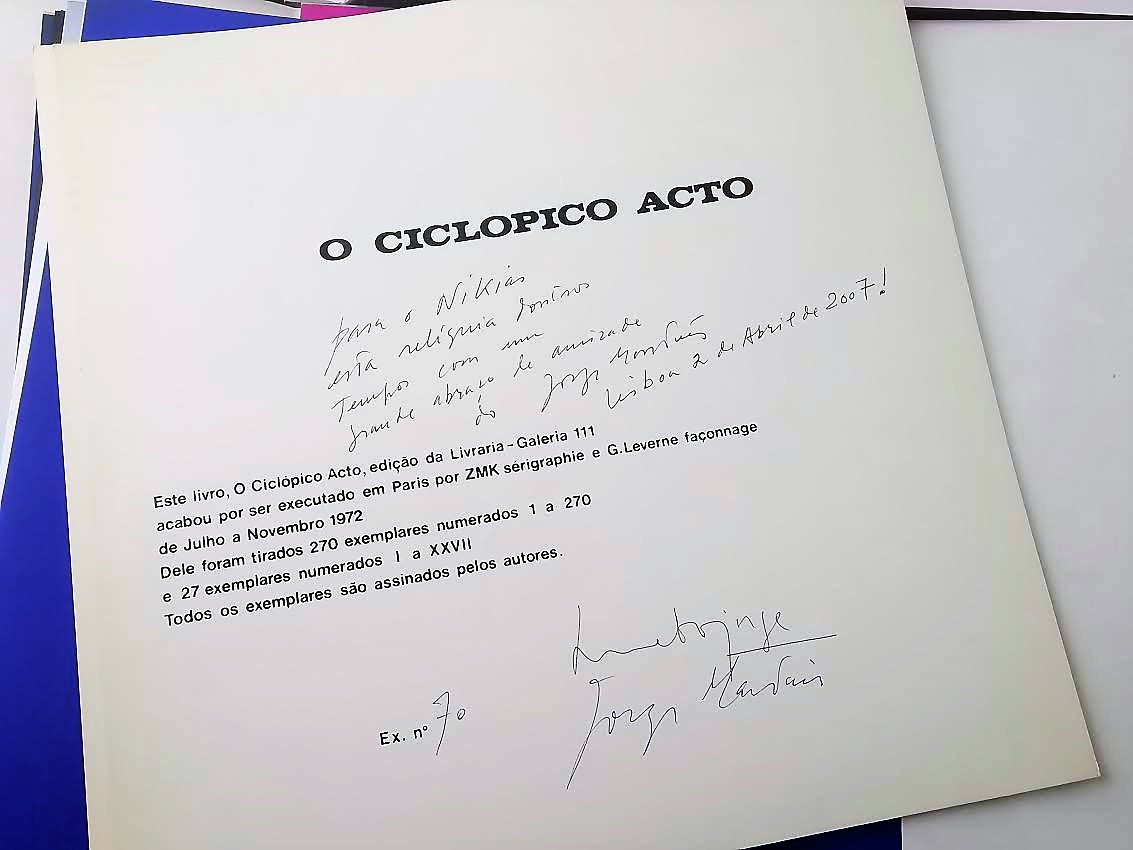 O CICLOPICO ACTO
para o Nikias
esta relíquia doutros
Tempos com um
grande abraço de amizade
do Jorge Martins
Lisboa 2 de Abril de 2007!
Este livro, O Ciclópico Acto, edição da Livraria-Galeria 111
acabou por ser executado em Paris por ZMK sérigraphie e G.Leverne façonnage
de Julho a Novembro 1972
Dele foram tirados 270 exemplares numerados 1 a 270
e 27 exemplares numerados I a XXVII
Todos os exemplares são assinados pelos autores.
Jorge Martins
Ex. nº 70